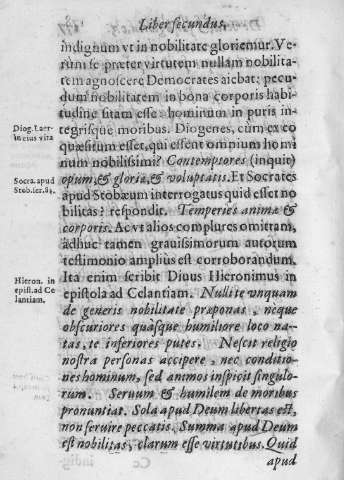 Liber secundus.
indignum vt in nobilitate gloriemur. Ve-
rùm se præter virtutem nullam nobilita-
tem agnoscere Democrates aiebat: pecu-
dum nobilitatem in bona corporis habi-
tudine sitam esse: hominum in puris in-
tegrisque moribus. Diogenes, cùm ex eo
quæsitum esset, qui essent omnium homi
num nobilissimi? Contemptores (inquit)
opum, & gloriæ, & voluptatis. Et Socrates
apud Stobæum interrogatus quid esset no
bilitas? respondit. Temperies animæ &
corporis. Ac vt alios complures omittam,
adhuc tamen grauissimorum autorum
testimonio amplius est corroborandum.
Ita enim scribit Diuus Hieronimus in
epistola ad Celantiam. Nulli te vnquam
de generis nobilitate præponas, neque
obscuriores quásque humiliore loco na-
tas, te inferiores putes. Nescit religio
nostra personas accipere, nec conditio-
nes hominum, sed animos inspicit singulo-
rum. Seruum & humilem de moribus
pronuntiat. Sola apud Deum libertas est,
non seruire peccatis. Summa apud Deum
est nobilitas, clarum esse virtutibus. Quid
apud
Diog. Laer-
in eius vita
Socra. apud
Stob. ser. 84.
Hieron. in
epist. ad Ce
lantiam.